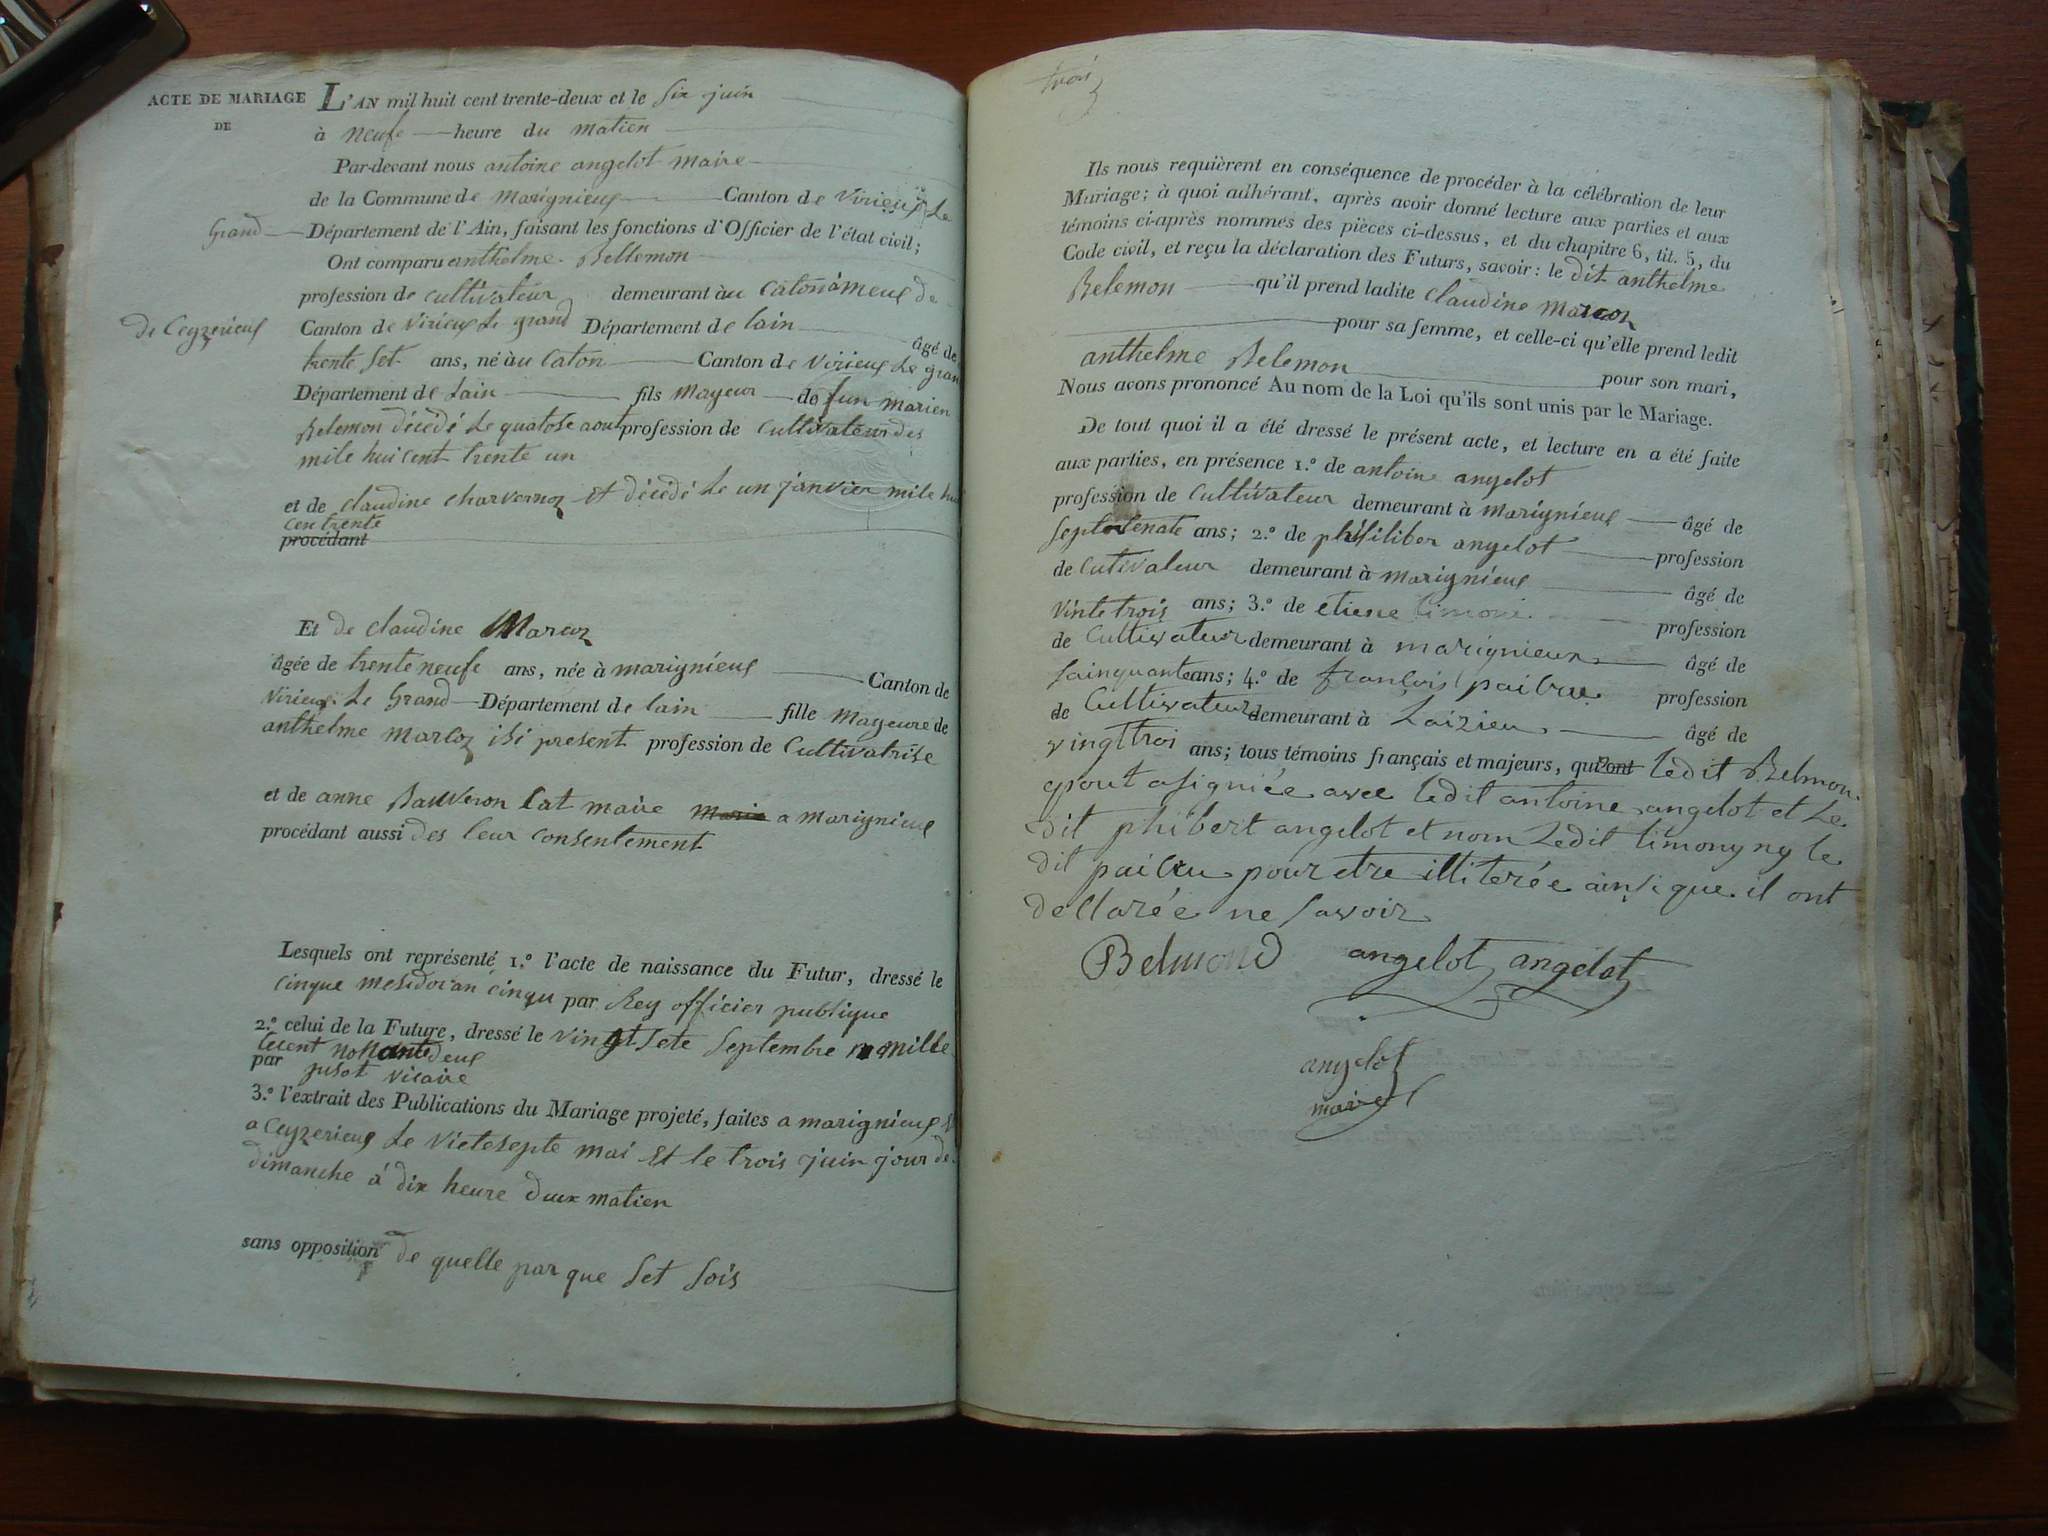 ACTE DE MARIAGE
DE
L'AN mil huit cent trente-deux et le six juin
à neufe heure du matien
Par-devant nous antoine angelot maire
de la Commune de marignieux Canton de virieux Le
Grand Département de l'Ain, faisant les fonctions d'Officier de l'état civil;
Ont comparu anthelme Bellemon
profession de cultivateur demeurant àu caton ameux de
de Ceyzerieux Canton de virieux Le grand Département de lain âgé de
trente set ans, né àu Caton Canton de virieux Le gran
Département de Lain fils mayeur de fun marien
Belemon décédé Le quatose aout profession de Cultivateur des
mile hui cent trente un
et de claudine charvernoz et décédé Le un janvier mile hui
cen trente
procédant
Et de claudine Marcoz
âgée de trente neufe ans, née à marignieux Canton de
virieux Le Grand Département de lain fille mayeure de
anthelme marcoz isi present profession de Cultivatrise
et de anne Bauveron Cat maire maria a marignieux
procédant aussi des leur consentement
Lesquels ont représenté 1.º l'acte de naissance du Futur, dressé le
cinque mesidor an cinqu par Rey officier publique
2.º celui de la Future, dressé le vingt sete septembre mille
cent nonante deux
par jusot vicaire
3.º l'extrait des Publications du Mariage projeté, faites a marignieux et
a Ceyzerieux Le vietesepte mai Et le trois juin jour de
dimanche á dix heure dux matien
sans opposition de quelle par que set sois
trois
Ils nous requièrent en conséquence de procéder à la célébration de leur
Mariage; à quoi adhérant, après avoir donné lecture aux parties et aux
témoins ci-après nommés des pièces ci-dessus, et du chapitre 6, tit. 5, du
Code civil, et reçu la déclaration des Futurs, savoir: le dit anthelme
Belemon qu'il prend ladite claudine marcoz
pour sa femme, et celle-ci qu'elle prend ledit
anthelme Belemon pour son mari,
Nous avons prononcé Au nom de la Loi qu'ils sont unis par le Mariage.
De tout quoi il a été dressé le présent acte, et lecture en a été faite
aux parties, en présence 1.º de antoine angelot
profession de cultivateur demeurant à marignieux âgé de
septentenate ans; 2.º de philiber angelot profession
de Cutivateur demeurant à marignieux âgé de
vinte trois ans; 3.º de etiene timoni profession
de Cultivateur demeurant à marignieux âgé de
sainquante ans; 4.º de francois paicru profession
de Cultivateur demeurant à Laizieu âgé de
vingttroi ans; tous témoins français et majeurs, qui ont ledit Belmon
epout a signiée avec ledit antoine angelot et Le
dit phibert angelot et nom Ledit timony ny le
dit paicru pour etre illiterée ainsi que il ont
dellarée ne savoir
Belmond angelot angelot
angelot
maire